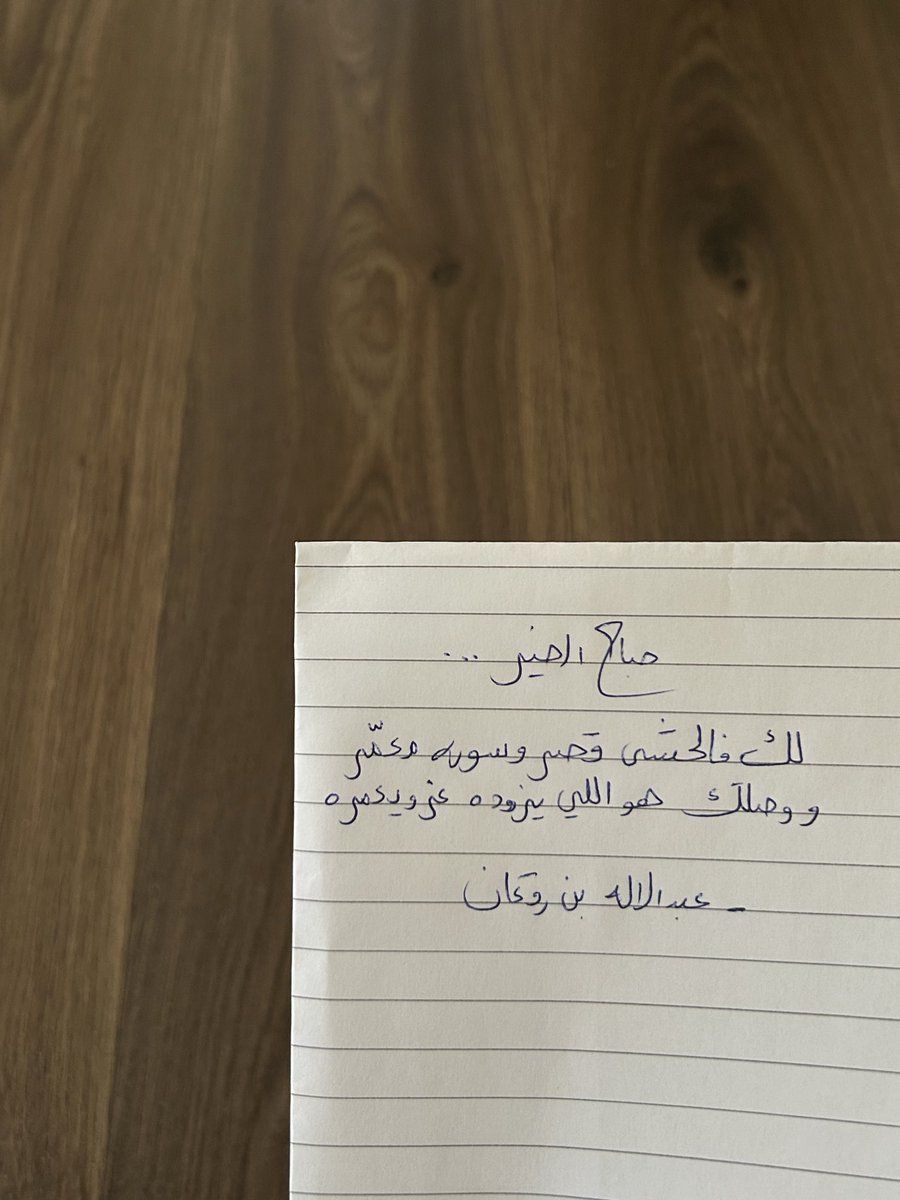 صباح الخير ...
لك فالحشى قصر وسوره معمّر
ووصلك هو اللي يزوده عز ويعمره
- عبدالاله بن